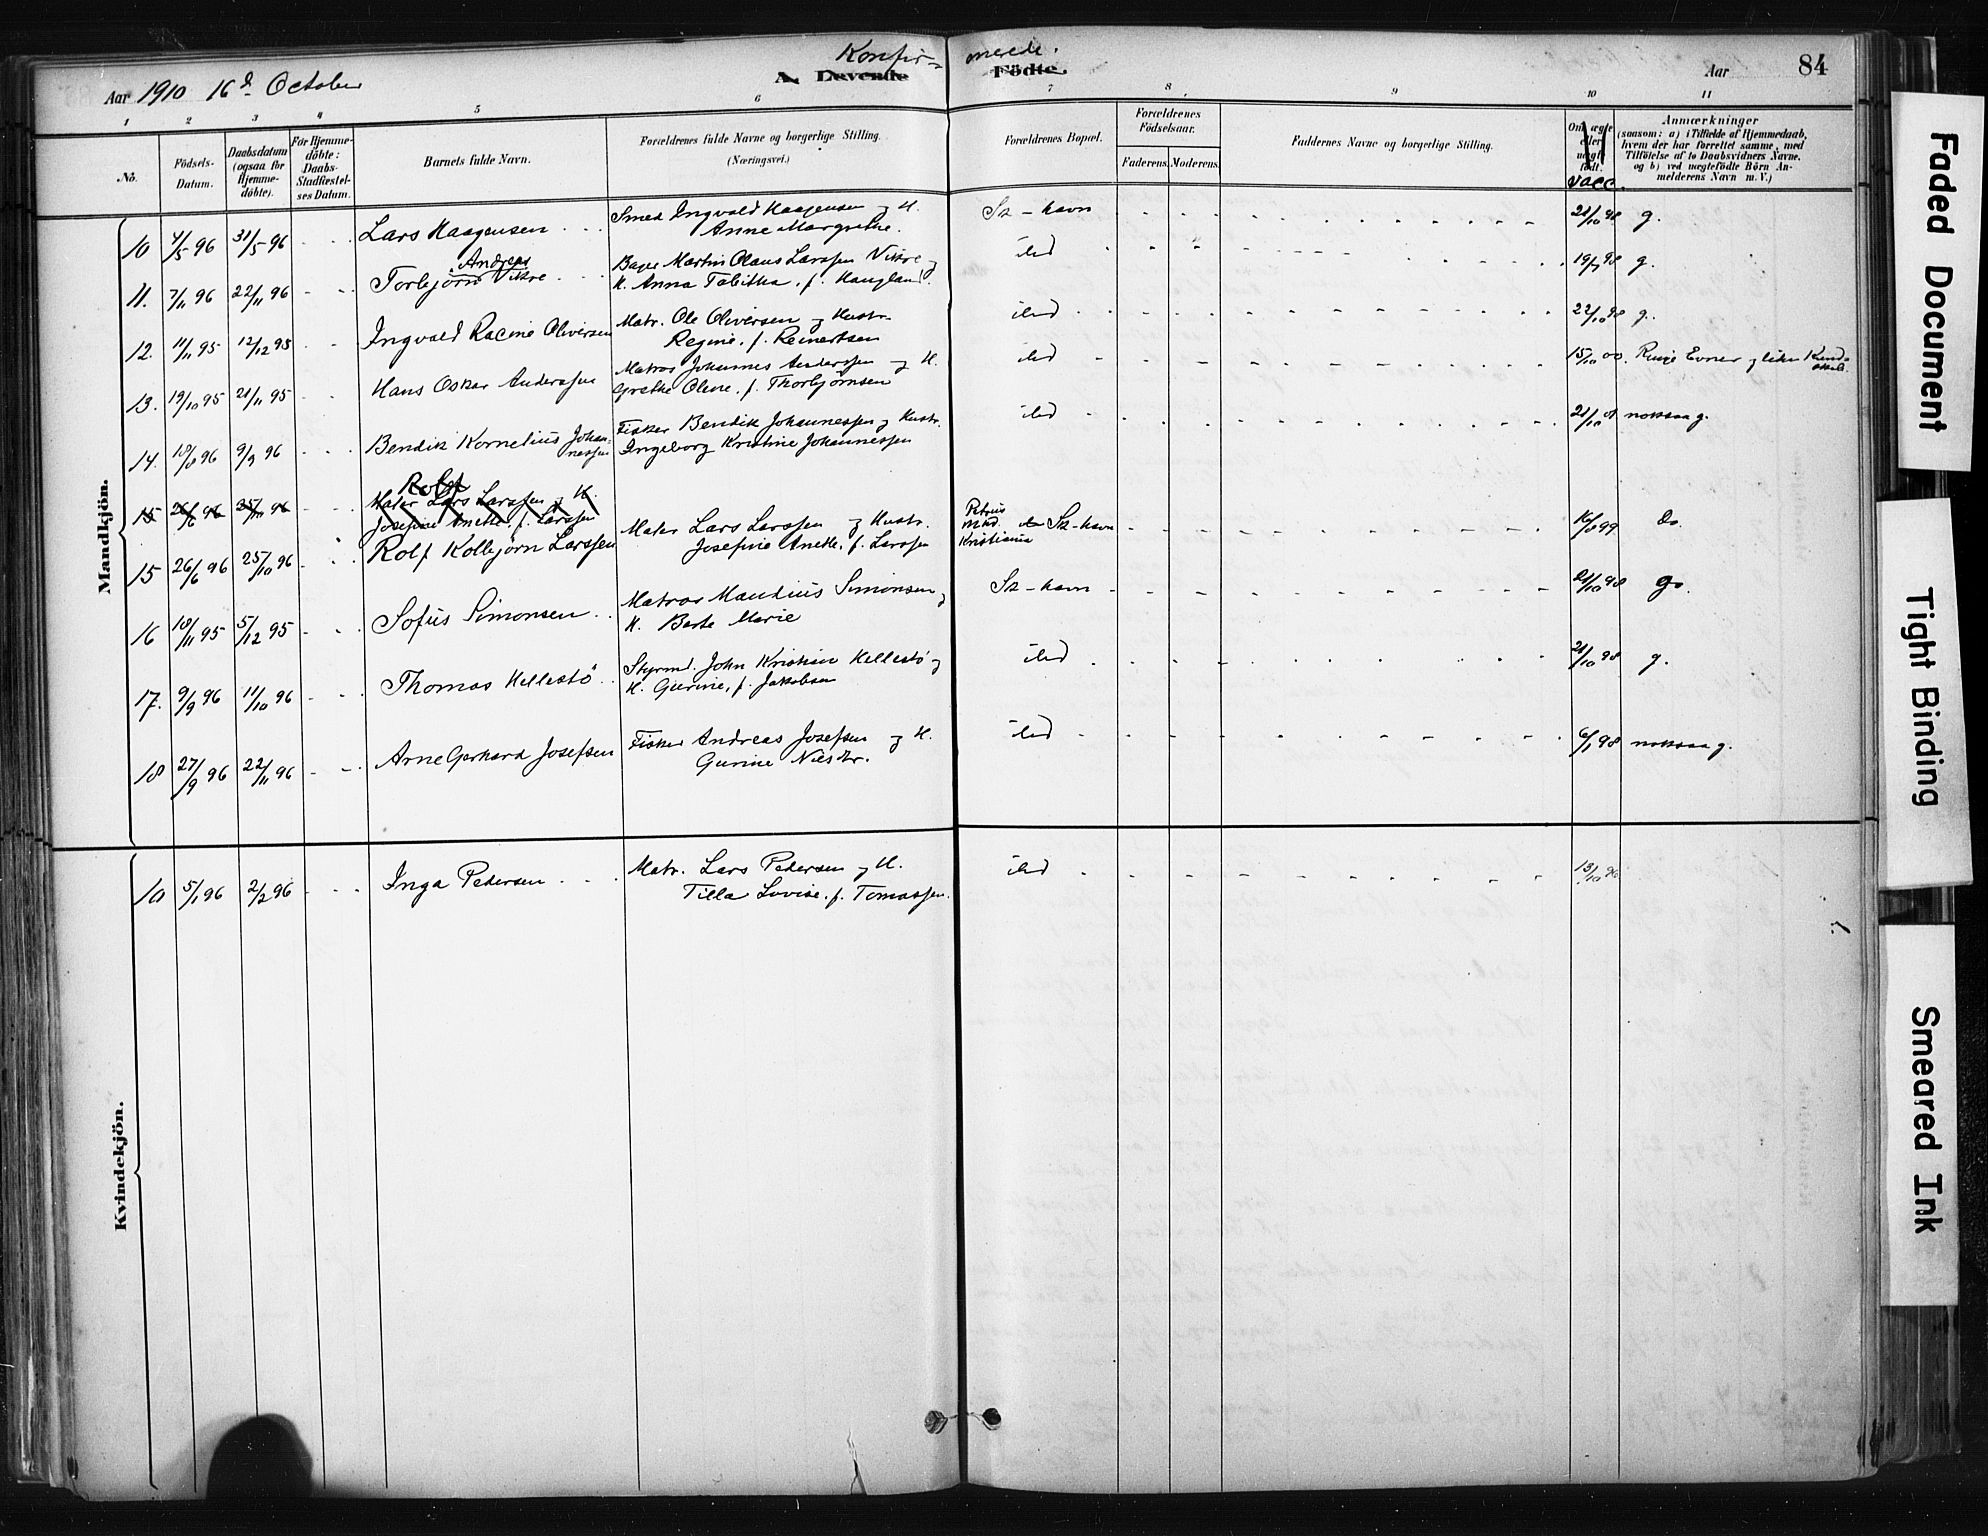 Aar 1910 16d October
Konfir=
merede.
A. Levende
Födte.
Aar
84
1 2 3 4 5 6 7 8 9 10 11
No.
Födsels-
Datum.
Daabsdatum
(ogsaa for
Hjemme-
döbte).
För Hjemme-
döbte:
Daabs-
Stadfæstel-
ses Datum.
Barnets fulde Navn.
Forældrenes fulde Navne og borgerlige Stilling.
(Næringsvei.)
Forældrenes Bopæl.
Forældrenes
Födselsaar.
Faderens. Moderens.
Faddernes Navne og borgerlige Stilling.
Om ægte
eller
uægte
født.
Vacc.
Anmærkninger
(saasom: a) i Tilfælde af Hjemmedaab,
hvem der har forrettet samme, med
Tilföielse af to Daabsvidners Navne.
og b) ved uægtefödte Börn An-
melderens Navn m. V.)
Mandkjön.
10 4/5 96 31/5 96 Lars Haagensen Smed Ingvald Haagensen og H.
Anne Margrethe. Sk-havn 21/10 98 g.
11. 7/11 96 22/11 96 Torbjörn Andreas Vikre Bager Martin Olaus Larssen Vikre og
H. Anna Tabitha, f. Haugland. ibid 19/7 98 g.
12. 11/11 95 12/12 95 Ingvald Racine Oliversen Matr. Ole Oliversen og Hustr.
Regine, f. Reinertsen ibid 22/10 98 g.
13. 19/10 95 21/11 95 Hans Oskar Anderssen Matros Johannes Anderssen og H.
Grethe Oline, f. Thorbjörnsen ibid 15/10 00. Ringe Evner og liden Kund-
skab.
14. 10/8 96 9/9 96 Bendik Kornelius Johan-
nessen Fisker Bendik Johannessen og Hustr.
Ingeborg Kristine Johannessen ibid 21/10 01 noksaa g.
Rolf
15 26/6 96 25/10 96 Mater Lars Larssen og H.
Josefine Anette, f. Larssen
15 26/6 96 25/10 96 Rolf Kolbjörn Larssen Mater Lars Larssen og Hustr.
Josefine Anette, f. Larssen Petrus
Mhd.
Kristiania Sk-havn 16/8 99 do.
16 18/11 95 5/12 95 Sofus Simonsen Matros Mauritius Simonsen og
H. Berte Marie Sk-havn 21/10 98 g.
17. 9/9 96 11/10 96 Thomas Hellestö Styrmd. John Kristian Hellestö og
H. Gurine, f. Jakobsen ibid 21/10 98 g.
18 27/9 96 22/11 96 Arne Gerhard Josefsen Fisker Andreas Josefsen og H.
Gurine Nilsdtr. ibid 6/1 98 noksaa g.
Kvindekjön.
10 5/1 96 2/2 96 Inga Pedersen Matr. Lars Pedersen og H.
Tilla Lovise, f. Tomassen. ibid 13/10 96
Faded Document
Tight Binding
Smeared Ink